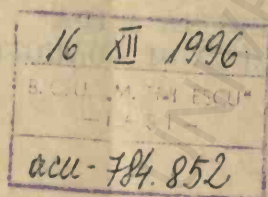 16 XII 1996
B.C.U. „M. EMINESCU"
– IAȘI –
acu - 784.852